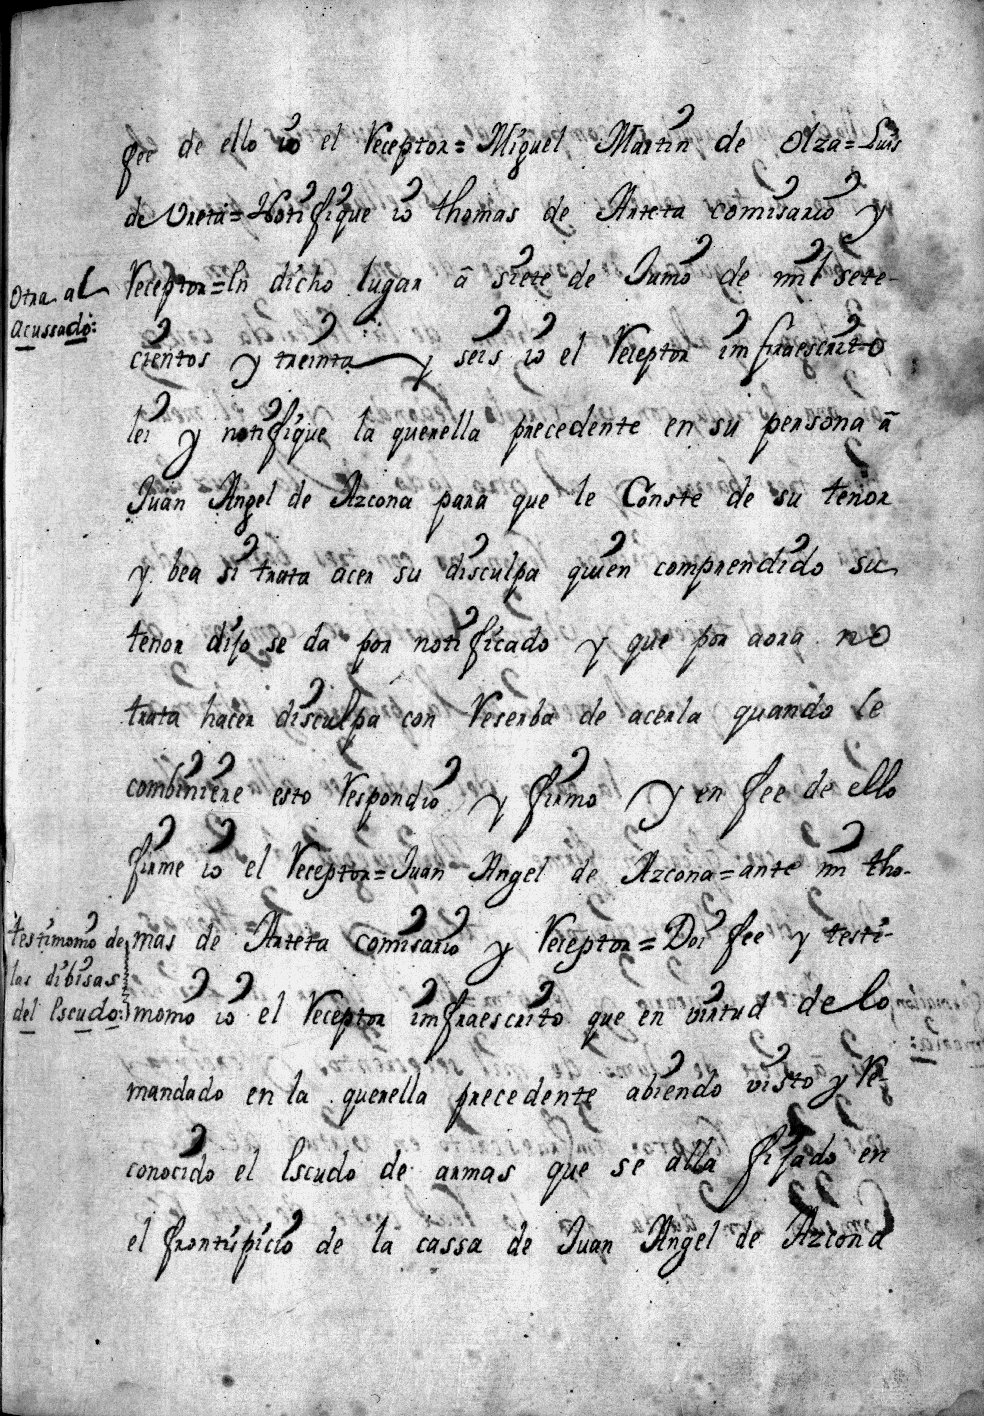 fee de ello io el Receptor = Miguel Martin de Olza = Luis
de Vreta = Notifique io thomas de Arteta comisario y
Otra al
acussado:
Receptor = En dicho lugar â siete de Junio de mil sete-
cientos y treinta y seis io el Receptor imfraescrito
lei y notifique la querella precedente en su persona â
Juan Angel de Azcona para que le Conste de su tenor
y bea si trata acer su disculpa quien comprendido su
tenor dijo se da por notificado y que por aora no
trata hacer disculpa con Reserba de acerla quando le
combiniere esto Respondio y firmo y en fee de ello
firme io el Receptor = Juan Angel de Azcona = ante mi tho-
testimonio de
las dibisas
del Escudo:
mas de Arteta comisario y Receptor = Doi fee y testi-
monio io el Receptor imfraescrito que en virtud de lo
mandado en la querella precedente abiendo visto y Re-
conocido el Escudo de armas que se alla fijado en
el frontispicio de la cassa de Juan Angel de Azcona